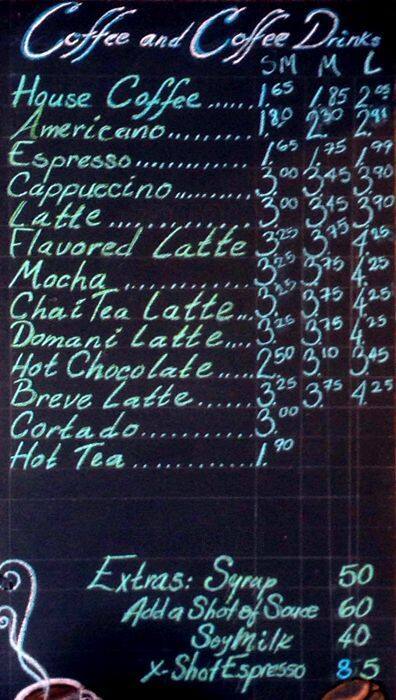 Coffee and Coffee Drinks
SM M L
House Coffee...... 1.65 1.85 2.05
Americano......... 1.80 2.30 2.81
Espresso............. 1.65 1.75 1.99
Cappuccino.......... 3.00 3.45 3.90
Latte.............. 3.00 3.45 3.90
Flavored Latte 3.25 3.75 4.25
Mocha ............. 3.25 3.75 4.25
Chai Tea Latte... 3.25 3.75 4.25
Domani Latte.... 3.25 3.75 4.25
Hot Chocolate ..... 2.50 3.10 3.45
Breve Latte....... 3.25 3.75 4.25
Cortado............ 3.00
Hot Tea............. 1.90
Extras: Syrup 50
Add a Shot of Sauce 60
Soy Milk 40
X-Shot Espresso 85